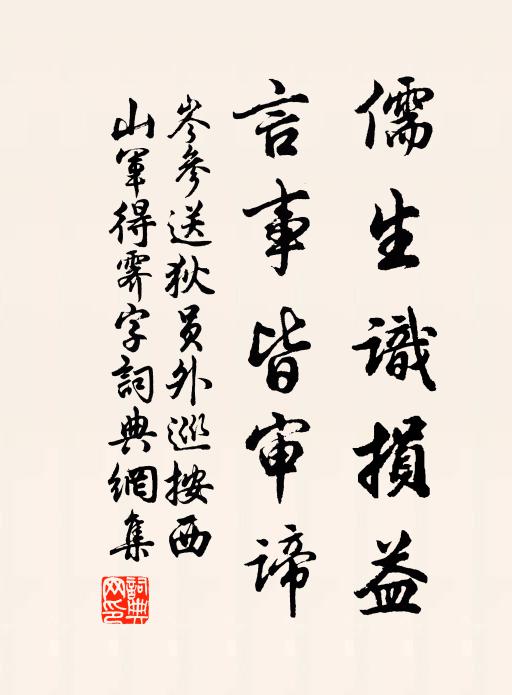 儒生識損益
言事皆审諦
岑參送狄員外巡按西
山軍得霽字詞典網集
詞典
网印